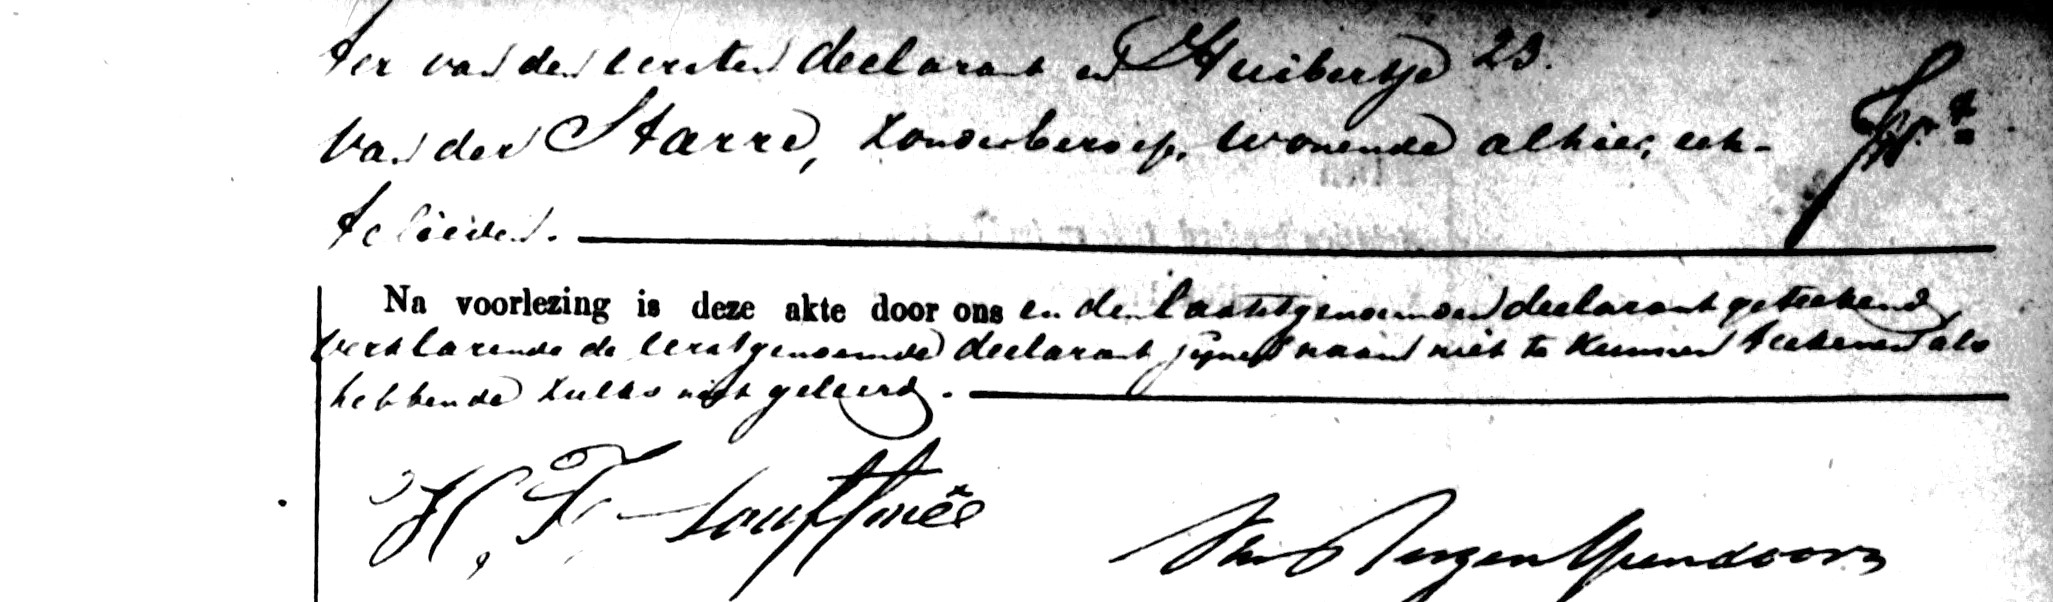 ter van den eersten declarant en Huibertje 23.
van der Starre, zonder beroep, wonende alhier, ech-
telieden.
Na voorlezing is deze akte door ons en den laatstgenoemden declarant geteekend,
verklarende de eerstgenoemde declarant zijnen naam niet te kunnen teekenen als
hebbende zulks niet geleerd.
H.
van Bergen IJzendoorn